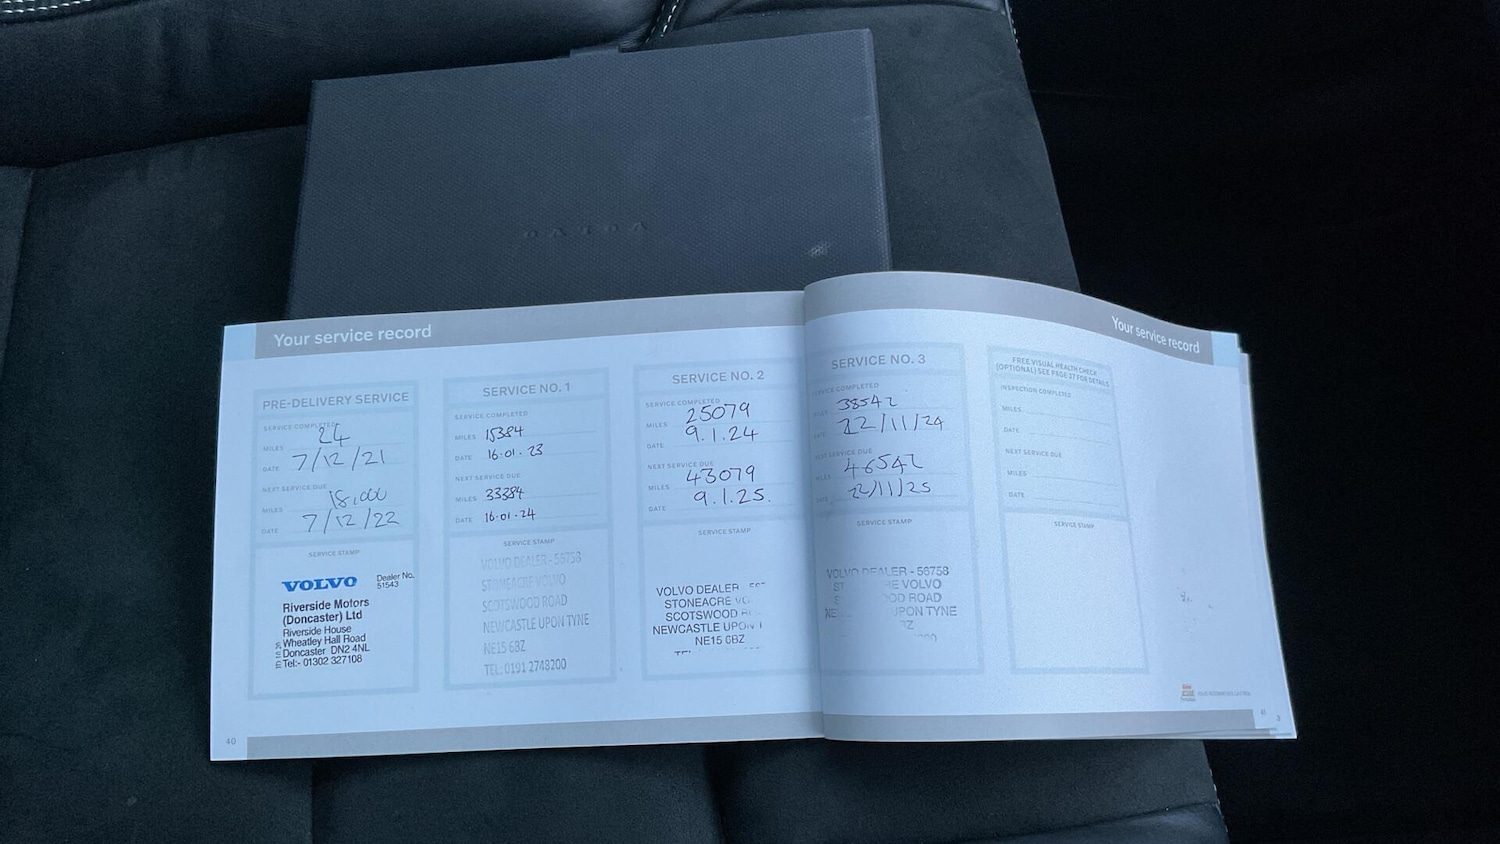 VOLVO
Your service record
PRE-DELIVERY SERVICE
SERVICE COMPLETED
MILES 24
DATE 7/12/21
NEXT SERVICE DUE
MILES 18,000
DATE 7/12/22
SERVICE STAMP
VOLVO Dealer No. 51543
Riverside Motors
(Doncaster) Ltd
Riverside House
Wheatley Hall Road
Doncaster DN2 4NL
Tel:- 01302 327108
40
SERVICE NO. 1
SERVICE COMPLETED
MILES 15384
DATE 16.01.23
NEXT SERVICE DUE
MILES 33384
DATE 16.01.24
SERVICE STAMP
VOLVO DEALER - 56758
STONEACRE VOLVO
SCOTSWOOD ROAD
NEWCASTLE UPON TYNE
NE15 6BZ
TEL: 0191 2748200
SERVICE NO. 2
SERVICE COMPLETED
MILES 25079
DATE 9.1.24
NEXT SERVICE DUE
MILES 43079
DATE 9.1.25.
SERVICE STAMP
VOLVO DEALER
STONEACRE
SCOTSWOOD
NEWCASTLE UPON
NE15 6BZ
Your service record
SERVICE NO. 3
SERVICE COMPLETED
MILES 38542
DATE 22/11/24
NEXT SERVICE DUE
MILES 46542
DATE 22/11/25
SERVICE STAMP
VOLVO DEALER - 56758
VOLVO
ROAD
UPON TYNE
FREE VISUAL HEALTH CHECK
(OPTIONAL) SEE PAGE 37 FOR DETAILS
INSPECTION COMPLETED
MILES
DATE
NEXT SERVICE DUE
MILES
DATE
SERVICE STAMP
41